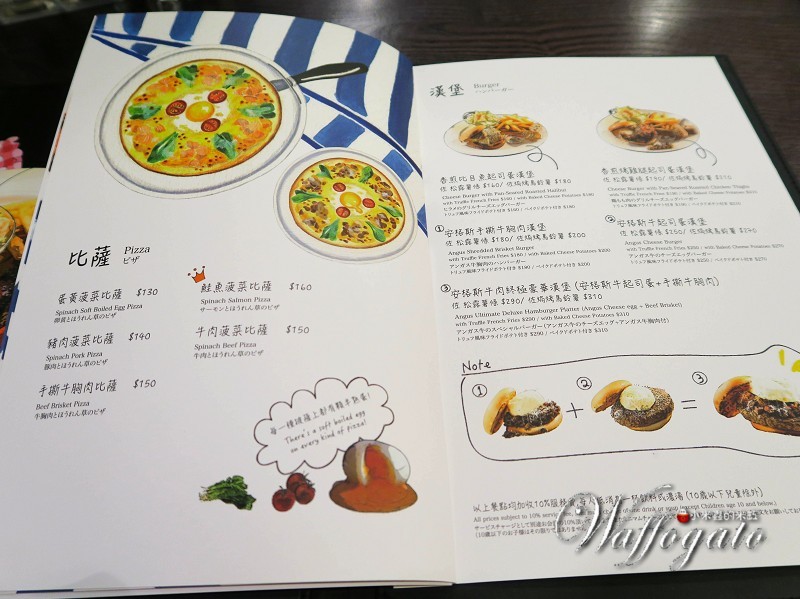 比薩 Pizza
ピザ
蛋黃菠菜比薩 $130
Spinach Soft Boiled Egg Pizza
卵黄とほうれん草のピザ
豬肉菠菜比薩 $140
Spinach Pork Pizza
豚肉とほうれん草のピザ
手撕牛胸肉比薩 $150
Beef Brisket Pizza
牛胸肉とほうれん草のピザ
鮭魚菠菜比薩 $160
Spinach Salmon Pizza
サーモンとほうれん草のピザ
牛肉菠菜比薩 $150
Spinach Beef Pizza
牛肉とほうれん草のピザ
每一種披薩上都有顆半熟蛋!
There's a soft boiled egg
on every kind of pizza!
漢堡 Burger
ハンバーガー
香煎比目魚起司蛋漢堡
佐 松露薯條 $160/ 佐焗烤馬鈴薯 $180
Cheese Burger with Pan-Seared Roasted Halibut
with Truffle French Fries $160 / with Baked Cheese Potatoes $180
ヒラメのグリルチーズエッグバーガー
香煎烤雞腿起司蛋漢堡
佐 松露薯條 $190/ 佐焗烤馬鈴薯
Cheese Burger with Pan-Seared Roasted Chicken Thighs
with Truffle French Fries $190 / with Baked Cheese Potatoes
①安格斯手撕牛胸肉漢堡
佐 松露薯條 $180/ 佐焗烤馬鈴薯 $200
Angus Shredded Brisket Burger
with Truffle French Fries $180 / with Baked Cheese Potatoes $200
アンガス牛胸肉のハンバーガー
②安格斯牛起司蛋漢堡
佐 松露薯條 $250/ 佐焗烤馬鈴薯 $270
Angus Cheese Burger
with Truffle French Fries $250 / with Baked Cheese Potatoes $270
アンガス牛のチーズエッグバーガー
③安格斯牛肉終極豪華漢堡 (安格斯牛起司蛋+手撕牛胸肉)
佐 松露薯條 $290/ 佐焗烤馬鈴薯 $310
Angus Ultimate Deluxe Hamburger Platter (Angus Cheese egg + Beef Brisket)
with Truffle French Fries $290 / with Baked Cheese Potatoes $310
アンガス牛のスペシャルバーガー(アンガス牛のチーズエッグ+アンガス牛胸肉付)
トリュフ風味フライドポテト付き $290 / ベイクドポテト付き $310
Note
① + ② = ③
以上餐點均加收10%服務費 每人低消 杯飲料或濃湯 (10歲以下兒童除外)
All prices subject to 10% of one drink or soup (except Children age 10 and below.)
Waffogato